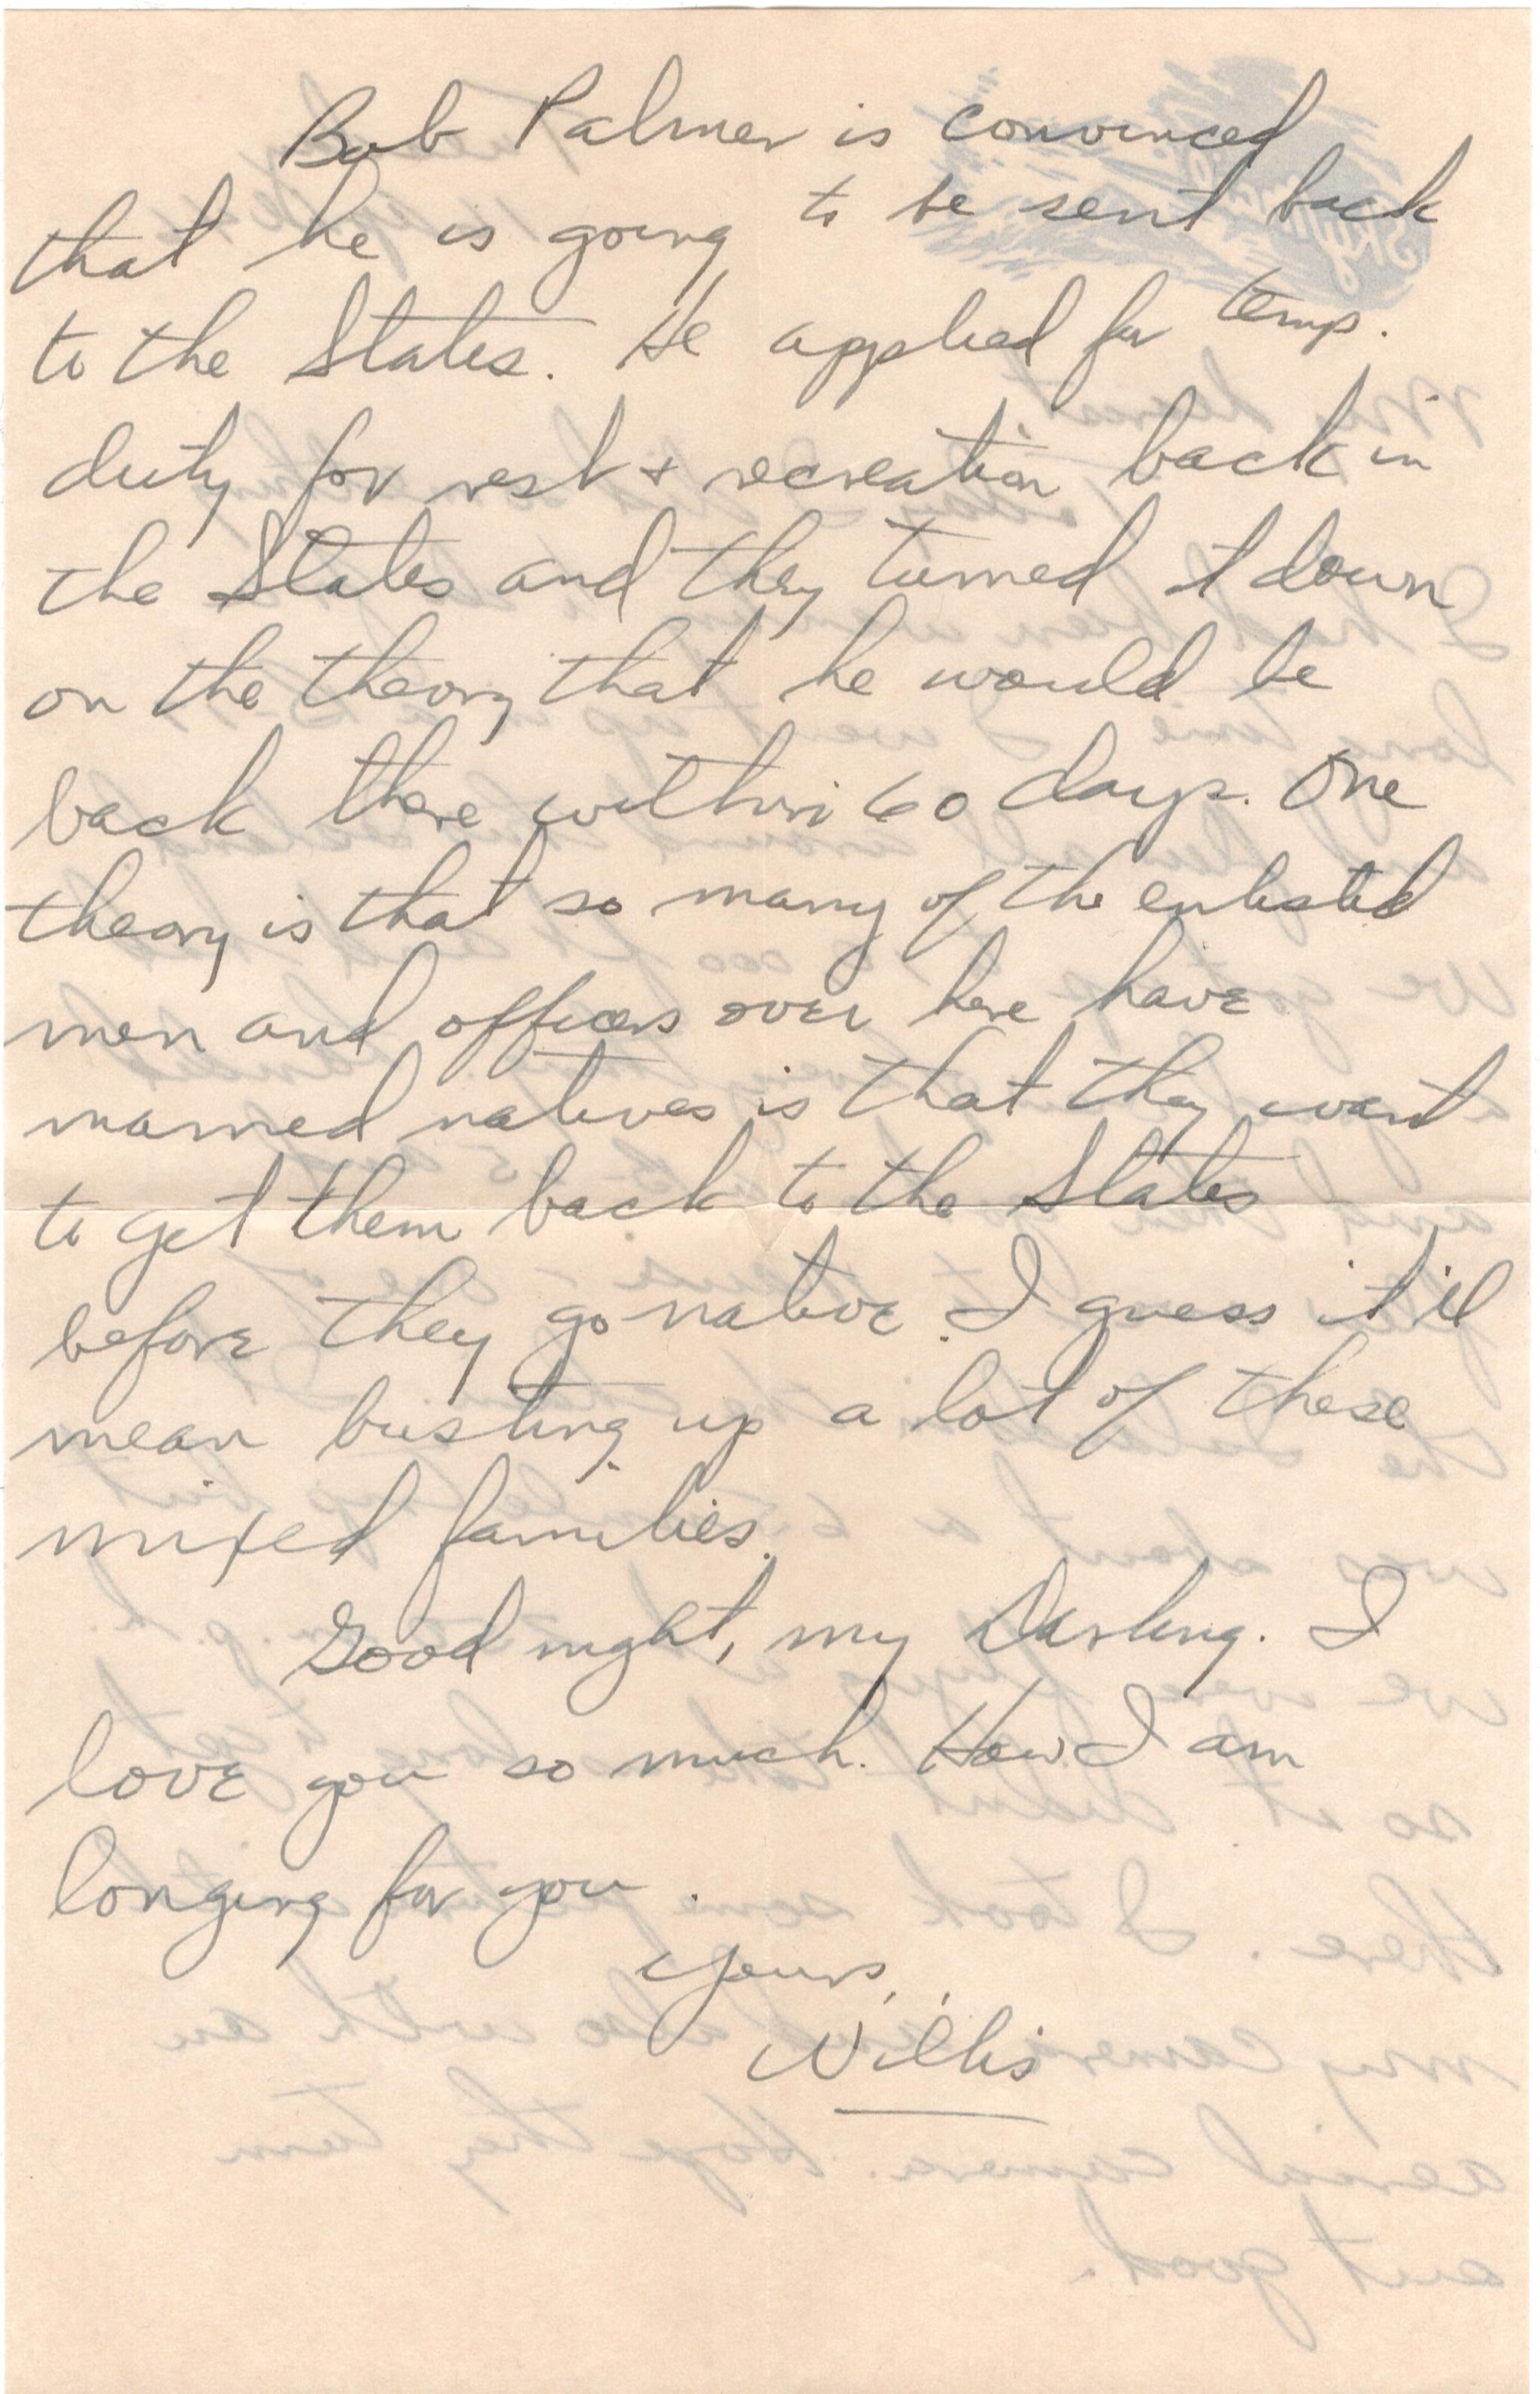 Bob Palmer is convinced
that he is going to be sent back
to the States. He applied for temp.
duty for rest + recreation back in
the States and they turned it down
on the theory that he would be
back there within 60 days. One
theory is that so many of the enlisted
men and officers over here have
married natives is that they want
to get them back to the States
before they go native. I guess it'll
mean busting up a lot of these
mixed families.
Good night, my Darling. I
love you so much. How I am
longing for you.
Yours,
Willis